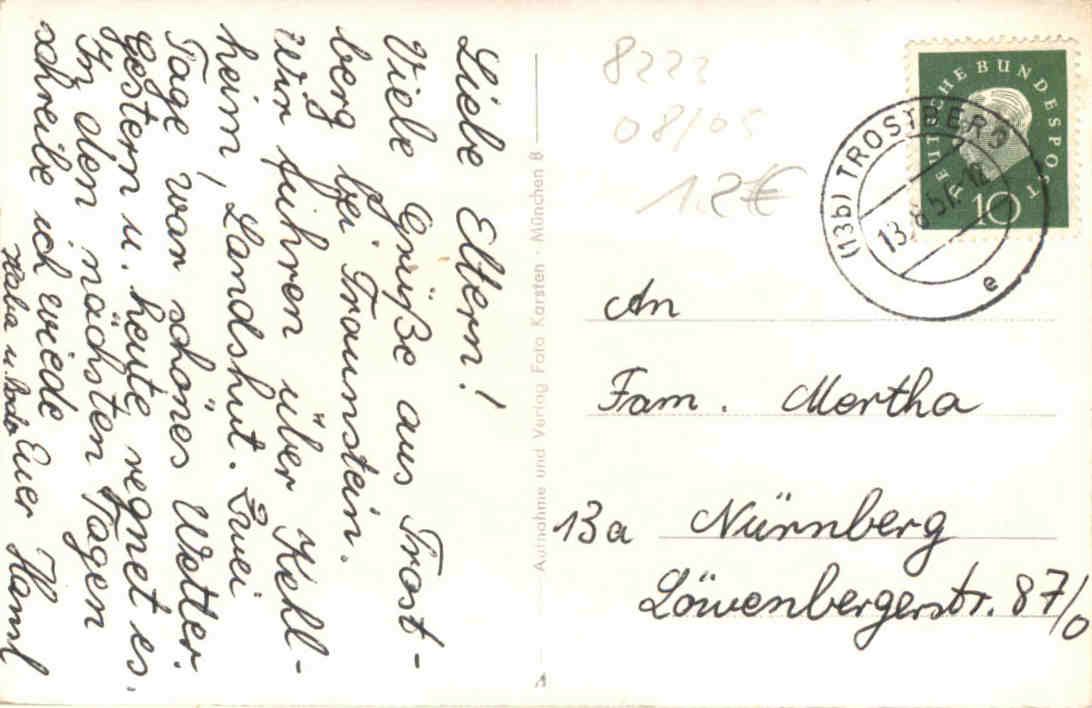 Liebe Eltern!
Viele Grüße aus Trost-
berg bei Traunstein.
Wir fuhren über Kell-
heim, Landshut. Zwei
Tage war schönes Wetter.
Gestern u. heute regnet es.
In den nächsten Tagen
schreibe ich wiede Euer Hansl
u.
Aufnahme und Verlag Foto Karsten · München 8
8222
08/05
1.2€
DEUTSCHE BUNDESPOST
10
(13b) TROSTBERG
e
An
Fam. Mertha
13a Nürnberg
Löwenbergerstr. 87/0